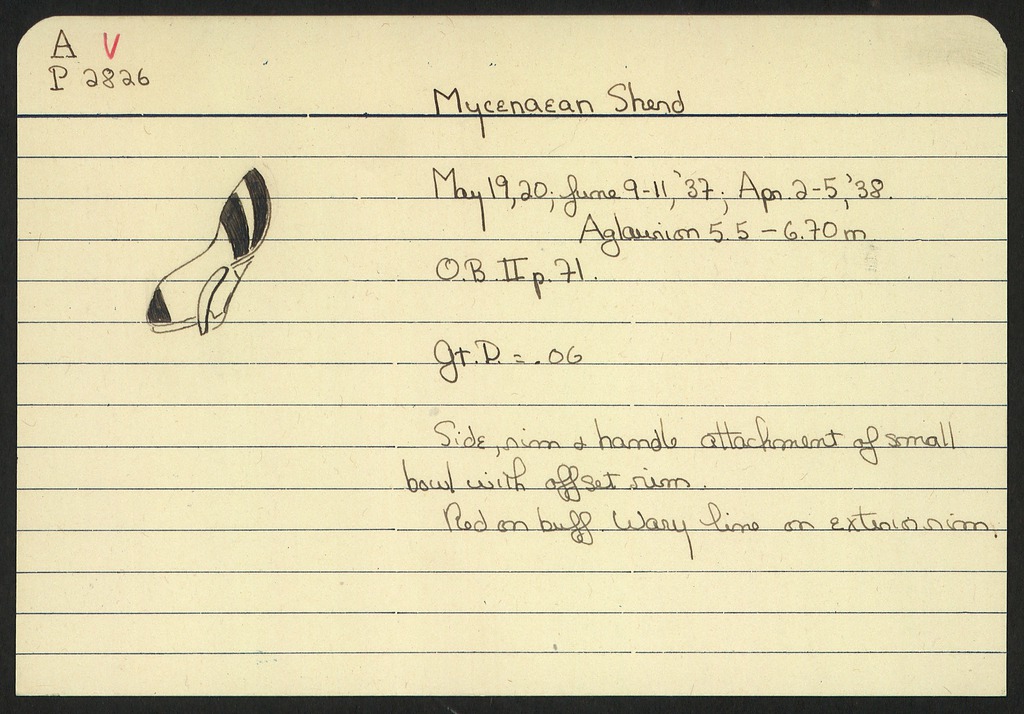 A V
P 2826
Mycenaean Sherd
May 19,20; June 9-11,'37; Apr. 2-5,'38.
Aglaurion 5.5 - 6.70 m
O.B. II p. 71.
Gt. D. = .06
Side, rim & handle attachment of small
bowl with offset rim.
Red on buff. Wavy line on exterior rim.